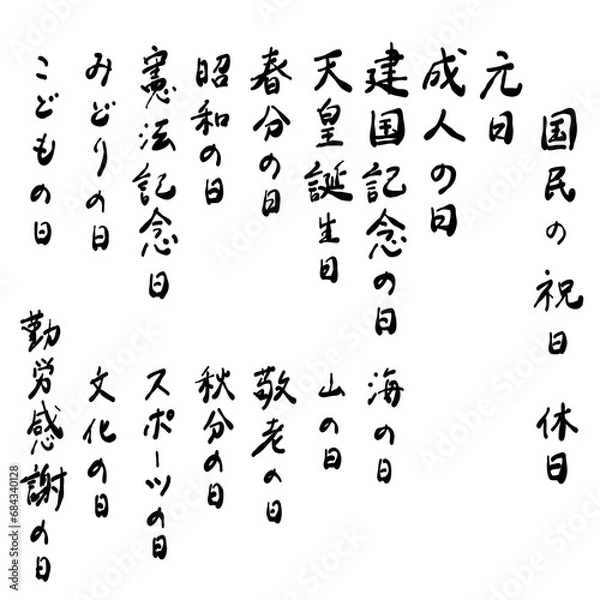 国民の祝日 休日
元日
成人の日
建国記念の日
天皇誕生日
春分の日
昭和の日
憲法記念日
みどりの日
こどもの日
海の日
山の日
敬老の日
秋分の日
スポーツの日
文化の日
勤労感謝の日
Adobe Stock | #684340128
Adobe Stock